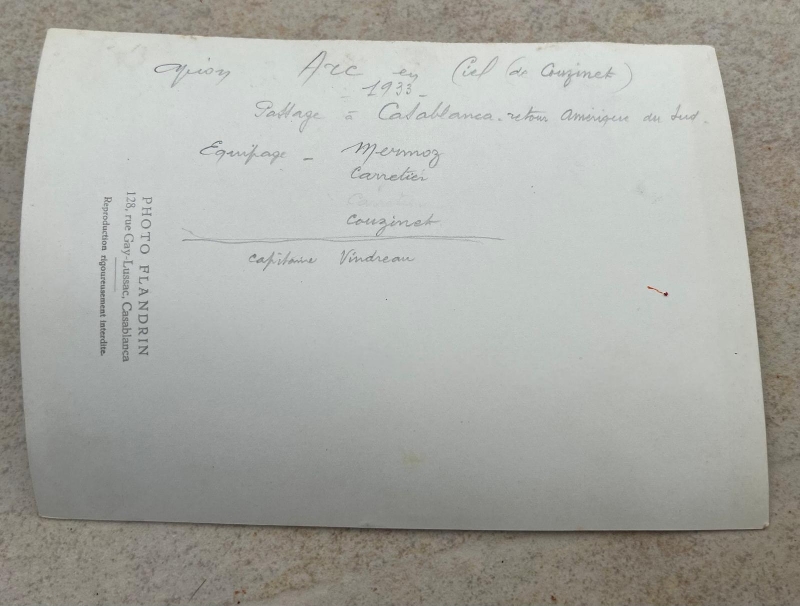 avion Arc en Ciel (de Couzinet)
- 1933 -
Passage à Casablanca - retour Amérique du Sud.
Equipage - Mermoz
Carretier
Carretier
Couzinet
capitaine Vindreau
PHOTO FLANDRIN
128, rue Gay-Lussac, Casablanca
Reproduction rigoureusement interdite.